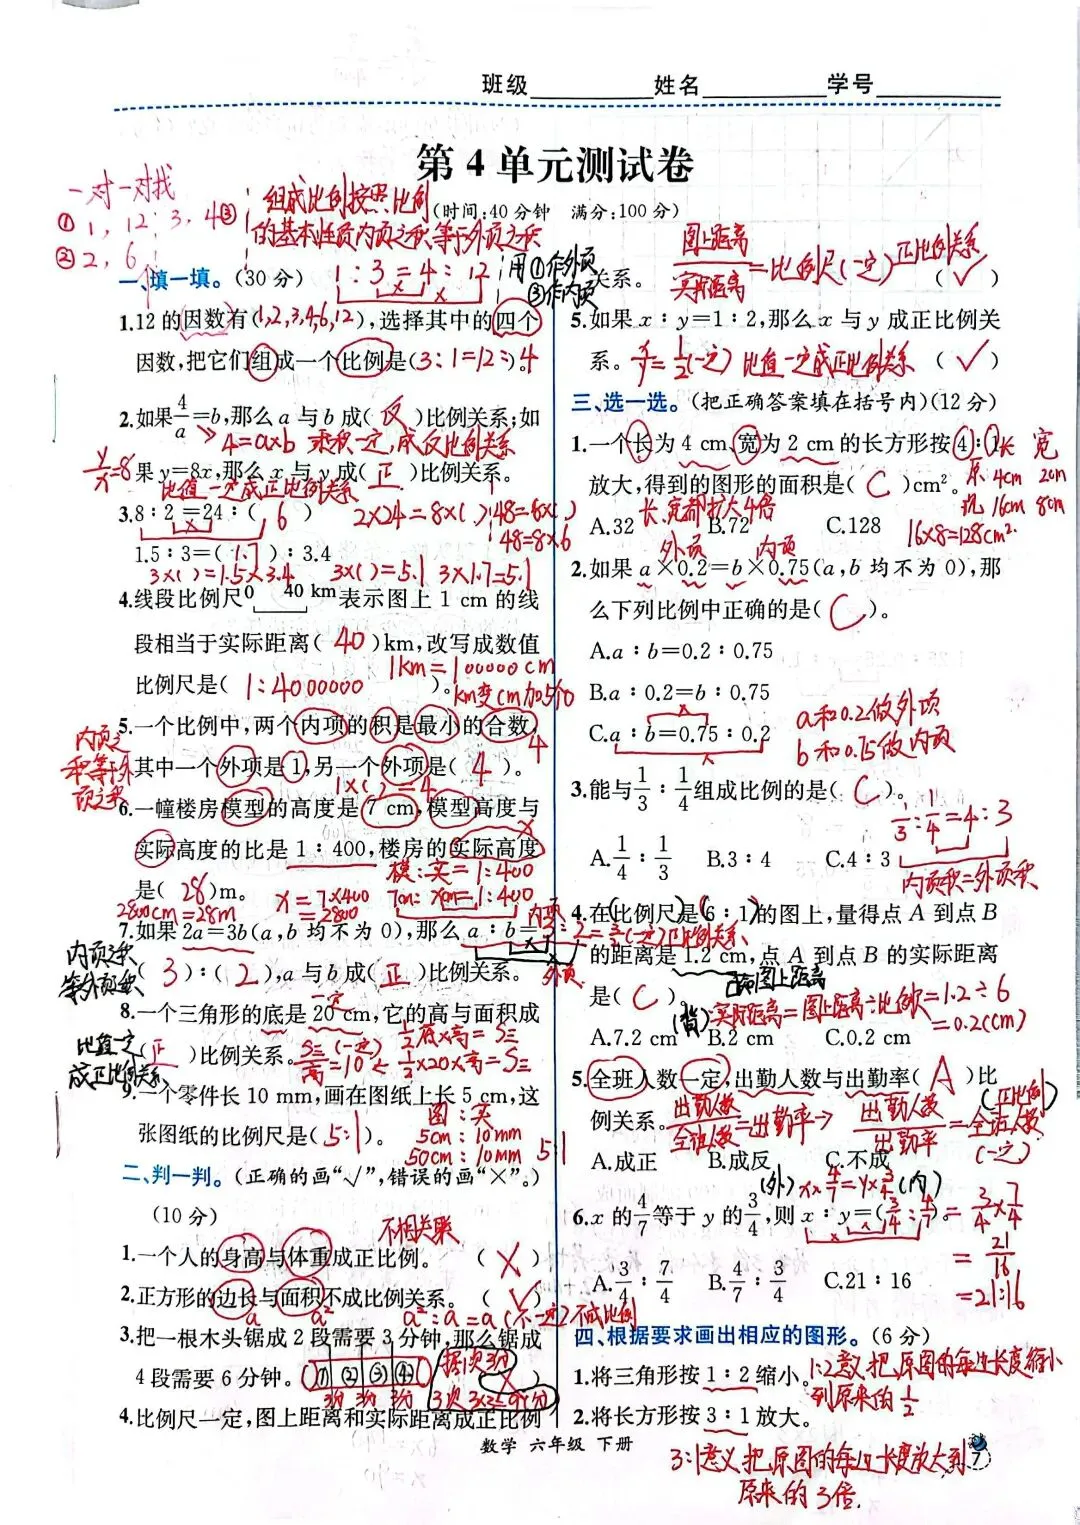 班级 姓名 学号
第4单元测试卷
(时间:40分钟 满分:100分)
一对一对找
① 1, 12; 3, 4
② 2, 6
③ 组成比例按照比例
的基本性质内项之积等于外项之积
一、填一填。(30分)
1:3=4:12
用①作外项
③作内项
1.12的因数有(1,2,3,4,6,12),选择其中的四个
因数,把它们组成一个比例是(3:1=12:4)。
2.如果4/a=b,那么a与b成(反)比例关系;如
4=a×b 乘积一定,成反比例关系
y/x=8
果y=8x,那么x与y成(正)比例关系。
比值一定成正比例关系
3.8:2=24:(6)
2×24=8×( ) 48=8×( )
48=8×6
1.5:3=(1.7):3.4
3×( )=1.5×3.4 3×( )=5.1 3×1.7=5.1
4.线段比例尺0 40 km表示图上1 cm的线
段相当于实际距离(40)km,改写成数值
1km=100000cm
比例尺是(1:4000000)。
km变cm加5个0
5.一个比例中,两个内项的积是最小的合数,
4
内项之积等于外项之积
其中一个外项是1,另一个外项是(4)。
1×( )=4
6.一幢楼房模型的高度是7 cm,模型高度与
实际高度的比是1:400,楼房的实际高度
模:实=1:400
是(28)m。
x=7×400
=2800
7cm:xcm=1:400
2800cm=28m
7.如果2a=3b(a,b均不为0),那么a:b=
内项
3:2=3/2(一定)正比例关系
内项之积等外项积
(3):(2),a与b成(正)比例关系。
外项
8.一个三角形的底是20 cm,它的高与面积成
一定
1/2底×高=S三
比值一定成正比例关系
(正)比例关系。
S三/高=10(一定)
1/2×20×高=S三
9.一个零件长10 mm,画在图纸上长5 cm,这
图:实
张图纸的比例尺是(5:1)。
5cm:10mm
50cm:10mm 5:1
二、判一判。(正确的画“√”,错误的画“×”。)
(10分)
不相关联
1.一个人的身高与体重成正比例。 (×)
2.正方形的边长与面积不成比例关系。 (√)
a a² a²:a=a(不一定)不成比例
3.把一根木头锯成2段需要3分钟,那么锯成
4段需要6分钟。 (×)
① ② ③ ④
3分 3分 3分
锯1次3分
3次3×3=9(分)
4.比例尺一定,图上距离和实际距离成正比例
关系。 (√)
图上距离/实际距离=比例尺(一定)正比例关系
5.如果x:y=1:2,那么x与y成正比例关
系。 x/y=1/2(一定) 比值一定成正比例关系 (√)
三、选一选。(把正确答案填在括号内)(12分)
1.一个长为4 cm,宽为2 cm的长方形按4:1
放大,得到的图形的面积是(C)cm²。
长 宽
原 4cm 2cm
现 16cm 8cm
长、宽都扩大4倍
A.32 B.72 C.128
16×8=128cm²
外项 内项
2.如果a×0.2=b×0.75(a,b均不为0),那
么下列比例中正确的是(C)。
A.a:b=0.2:0.75
B.a:0.2=b:0.75
C.a:b=0.75:0.2
a和0.2做外项
b和0.75做内项
3.能与1/3:1/4组成比例的是(C)。
1/3:1/4=4:3
A.1/4:1/3 B.3:4 C.4:3
内项积=外项积
4.在比例尺是6:1的图上,量得点A到点B
的距离是1.2 cm,点A到点B的实际距离
图上距离
是(C)。
(背)实际距离=图上距离÷比例尺=1.2÷6
=0.2(cm)
A.7.2 cm B.2 cm C.0.2 cm
5.全班人数一定,出勤人数与出勤率(A)比
例关系。
出勤人数/全班人数=出勤率→出勤人数/出勤率=全班人数(一定)
(正比例)
A.成正 B.成反 C.不成
(外)x×4/7=y×3/4(内)
6.x的4/7等于y的3/4,则x:y=(3/4:4/7)。
=3/4×7/4
=21/16
=21:16
A.3/4:7/4 B.4/7:3/4 C.21:16
四、根据要求画出相应的图形。(6分)
1.将三角形按1:2缩小。
1:2意义把原图的每边长度缩小
到原来的1/2
2.将长方形按3:1放大。
3:1意义把原图的每边长度放大到
原来的3倍.
数学 六年级 下册
7